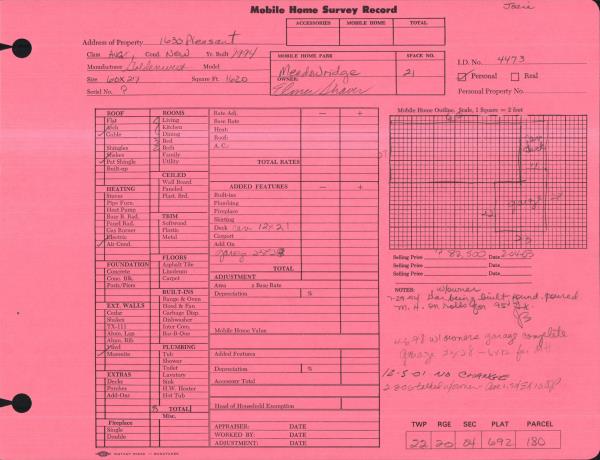 Mobile Home Survey Record
Josie
ACCESSORIES MOBILE HOME TOTAL
Address of Property 1630 Pleasant
Class Cond. New Yr. Built 1994
Manufacturer Goldenwest Model
Size 60X27 Square Ft. 1620
Serial No. ?
MOBILE HOME PARK SPACE NO.
Meadowridge 21
OWNER:
Elmer Shaver
I.D. No. 4473
Personal Real
Personal Property No.
ROOF
Flat
Arch
Gable
Shingles
Shakes
Pat Shingle
Built-up
HEATING
Stoves
Pipe Furn.
Heat Pump
Base B. Rad.
Panel Rad.
Gas Burner
Electric
Air Cond.
FOUNDATION
Concrete
Conc. Blk.
Posts/Piers
EXT. WALLS
Cedar
Shakes
TX-111
Alum. Lap
Alum. Rib
Plwd
Masonite
EXTRAS
Decks
Porches
Add-Ons
Fireplace
Single
Double
ROOMS
Living
Kitchen
Dining
Bed
Bath
Family
Utility
CEILED
Wall Board
Paneled
Plast. Brd.
TRIM
Softwood
Plastic
Metal
FLOORS
Asphalt Tile
Linoleum
Carpet
BUILT-INS
Range & Oven
Hood & Fan
Garbage Disp.
Dishwasher
Inter Com.
Bar-B-Que
PLUMBING
Tub
Shower
Toilet
Lavatory
Sink
H.W. Heater
Hot Tub
8 TOTAL
Misc.
Rate Adj. — +
Base Rate
Heat:
Roof:
A. C.
TOTAL RATES
ADDED FEATURES — +
Built-ins
Plumbing
Fireplace
Skirting
Deck cov. 12x21
Carport
Add On
garage 24x28
TOTAL
ADJUSTMENT
Area x Base Rate
Depreciation %
Mobile Home Value
Added Features
Depreciation %
Accessory Total
Head of Household Exemption
APPRAISER: DATE
WORKED BY: DATE
ADJUSTMENT: DATE
Mobile Home Outline. Scale, 1 Square = 2 feet
garage
Selling Price 82,500 Date
Selling Price Date
Selling Price Date
NOTES: w/owner
being built found. poured
M.H. on holes for 95
garage complete
Garage 24x28
12-5-01 NO CHANGE
TWP RGE SEC PLAT PARCEL
22 20 04 692 180